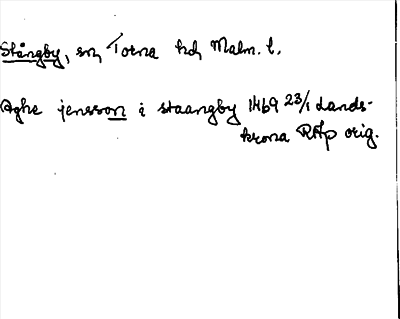 Stångby, sn, Torna hd, Malm. l.
Aghe jensson i staangby 1469 23/1 Lands-
krona RAp orig.